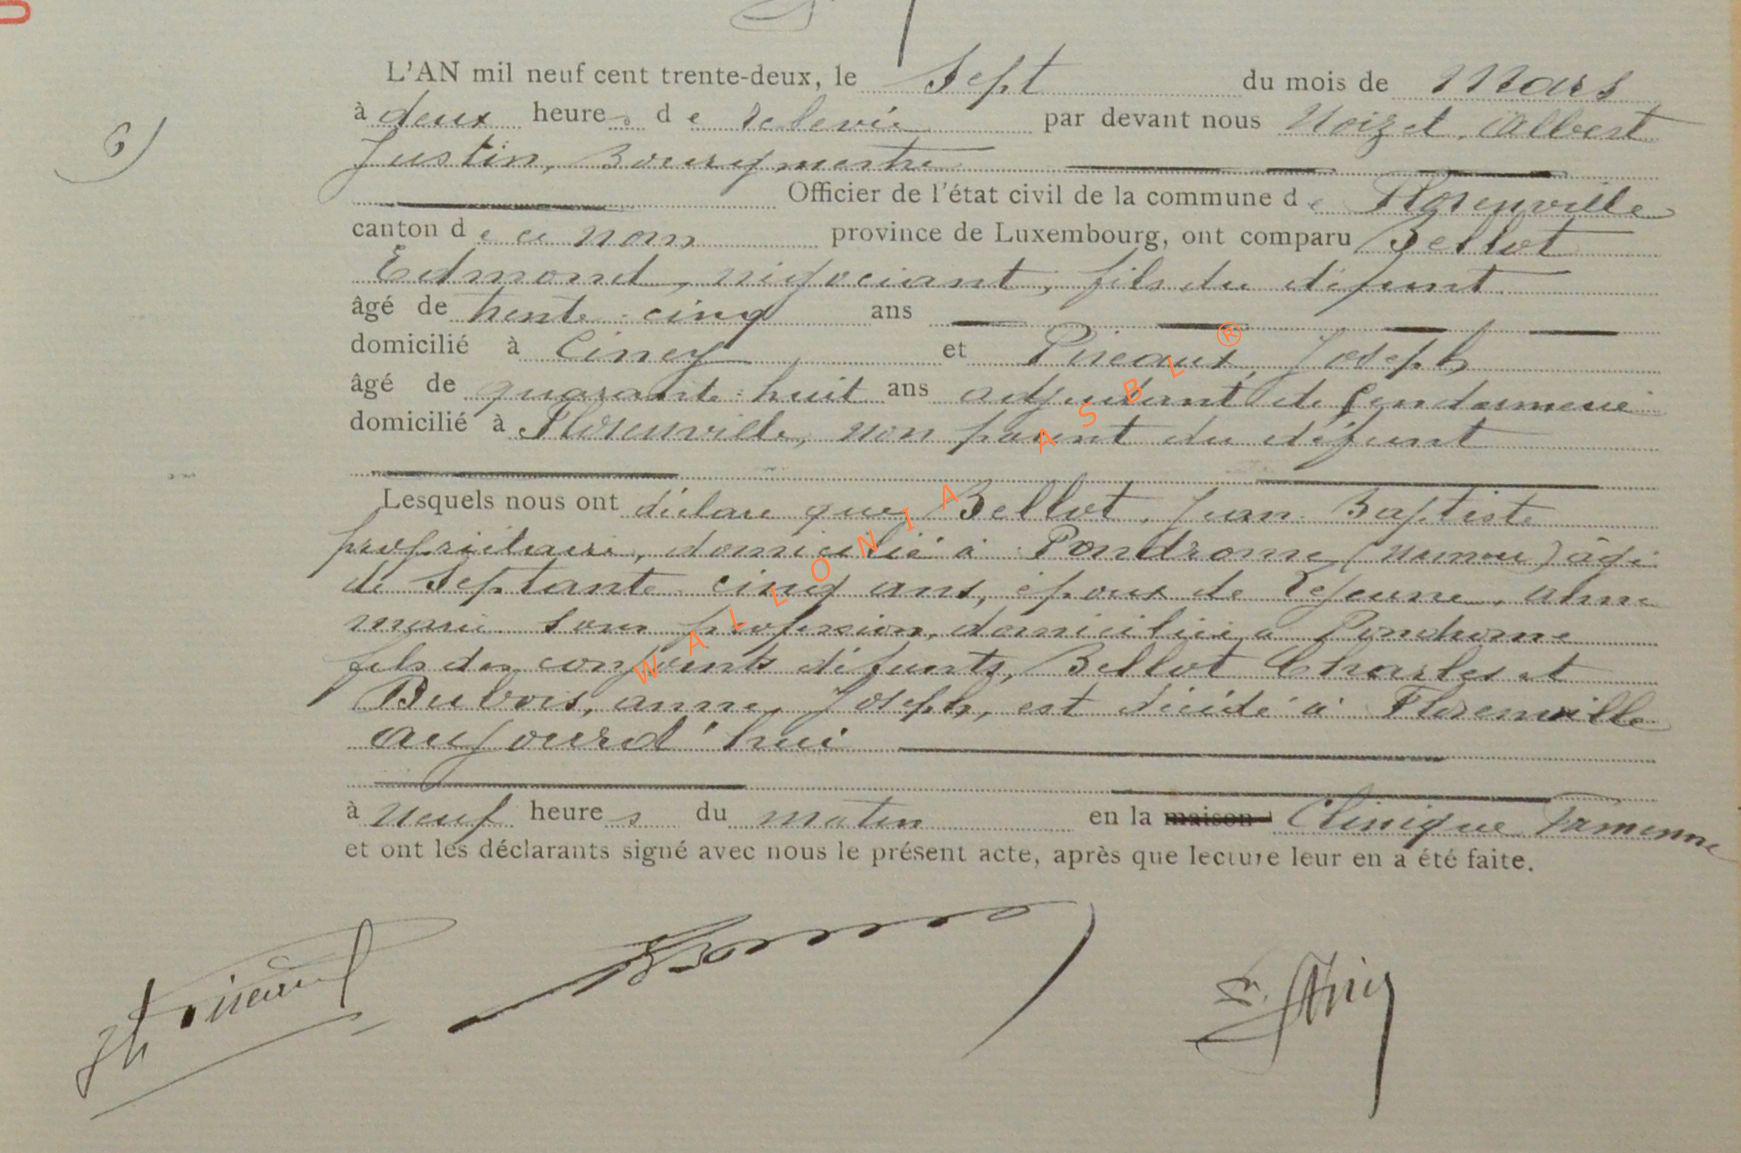 L'AN mil neuf cent trente-deux, le Sept du mois de Mars
à deux heures de relevée par devant nous Noizet, Albert
6)
Justin, Bourgmestre
Officier de l'état civil de la commune de Florenville
canton de ce nom province de Luxembourg, ont comparu Bellot
Edmond, négociant, fils du défunt
âgé de trente-cinq ans
domicilié à Ciney et Pireaux, Joseph
âgé de quarante-huit ans adjudant de gendarmerie
domicilié à Florenville, non parent du défunt
Lesquels nous ont déclaré que Bellot, Jean Baptiste
propriétaire, domicilié à Pondrome (Namur) âgé
de Septante cinq ans, époux de Lejeune, Anne
marie sans profession, domiciliée à Pondrome
fils des conjoints défunts, Bellot Charles et
Dubois, anne, Joseph, est décédé à Florenville
aujourd'hui
à neuf heures du matin en la maison Clinique Famenne
et ont les déclarants signé avec nous le présent acte, après que lecture leur en a été faite.
WALLONIA ASBL ®